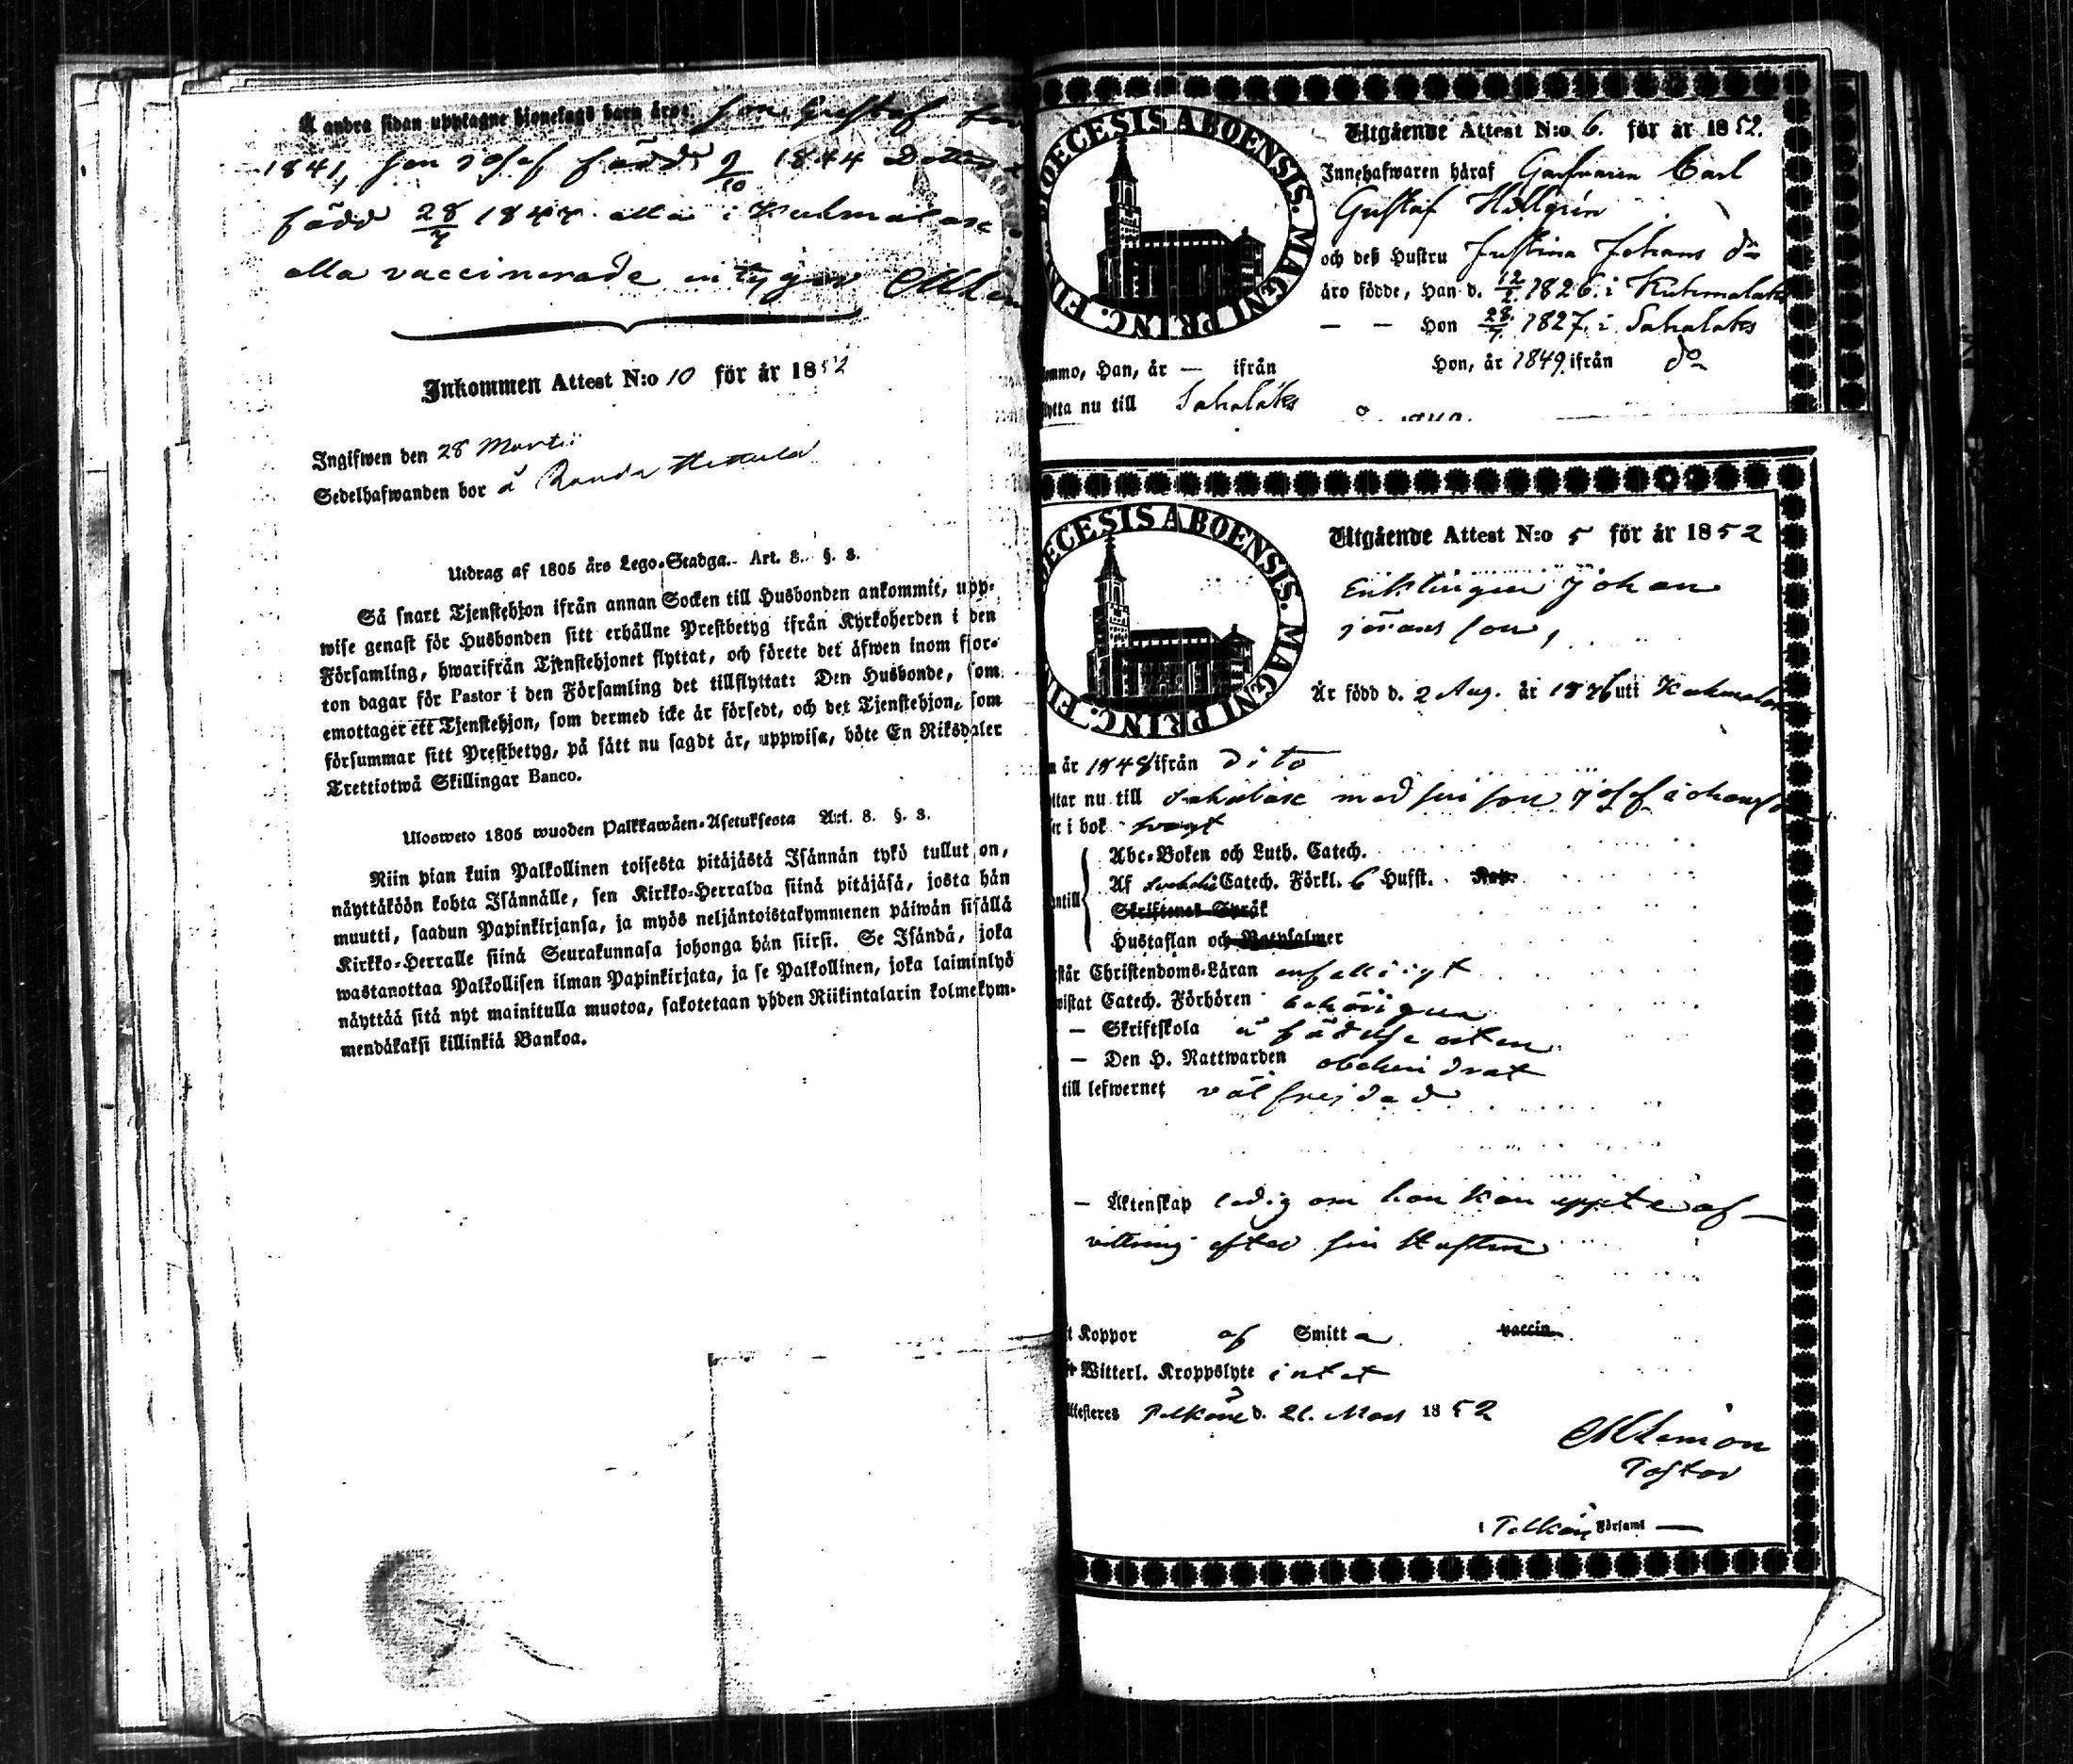 Å andra sidan upptagne hjonelags barn äro: son Gustaf
1841, son Josef född 9/10 1844 Dotter
född 28/4 1847 alla i Kuhmalax
alla vaccinerade intygar
Inkommen Attest N:o 10 för år 1852
Ingifwen den 28 Martii
Sedelhafwanden bor å
Utdrag af 1805 års Lego-Stadga. Art. 8. §. 3.
Så snart Tjenstehjon ifrån annan Socken till Husbonden ankommit, upp-
wise genast för Husbonden sitt erhållne Prestbetyg ifrån Kyrkoherden i den
Församling, hwarifrån Tjenstehjonet flyttat, och förete det äfwen inom fjor-
ton dagar för Pastor i den Församling det tillflyttat: Den Husbonde, som
emottager ett Tjenstehjon, som dermed icke är försedt, och det Tjenstehjon, som
försummar sitt Prestbetyg, på sätt nu sagdt är, uppwisa, böte En Riksdaler
Trettiotwå Skillingar Banco.
Ulosweto 1805 wuoden Palkkawäen-Asetuksesta Art. 8. §. 3.
Niin pian kuin Palkollinen toisesta pitäjästä Isännän tykö tullut on,
näyttäköön kohta Isännälle, sen Kirkko-Herralda siinä pitäjäsä, josta hän
muutti, saadun Papinkirjansa, ja myös neljäntoistakymmenen päiwän sisällä
Kirkko-Herralle siinä Seurakunnasa johonga hän siirsi. Se Isändä, joka
wastanottaa Palkollisen ilman Papinkirjata, ja se Palkollinen, joka laiminlyö
näyttää sitä nyt mainitulla muotoa, sakotetaan yhden Riikintalarin kolmekym-
mendäkaksi killinkiä Bankoa.
DIOECESIS ABOENSIS. MAGNI PRINC. FIN
Utgående Attest N:o 6. för år 1852.
Innehafwaren häraf Garfwaren Carl
Gustaf Hellgrén
och deß Hustru Justina Johans dr
äro födde, Han d. 12/2 1826. i Kuhmalaks
— — Hon 28/4 1827. i Sahalaks
ommo, Han, år — ifrån Hon, år 1849 ifrån do
lytta nu till Sahalaks
ECESIS ABOENSIS. MAGNI PRINC. FIN
Utgående Attest N:o 5 för år 1852
Enklingen Johan
Jörans son,
Är född d. 2 Aug. år uti
år 1848 ifrån dito
ttar nu till Sahalax med sin son Josef Johansson
i bok swagt
Abc-Boken och Luth. Catech.
Af Catech. Förkl. 6 Hufst. Kap.
antill
Skriftenes Språk
Hustaflan och Botpsalmer
står Christendoms-Läran enfaldigt
wistat Catech. Förhören behörigen
— Skriftskola å födelse orten
— Den H. Nattwarden obehindrat
till lefwernet välfrejdad
— Äktenskap ledig om han kan uppte af-
vittring efter sin hustru
t Koppor af Smitta vaccin.
Witterl. Kroppslyte intet
Attesteres Pelkäne d. 21. Mars 1852
Pastor
i Pelkäne Församl —